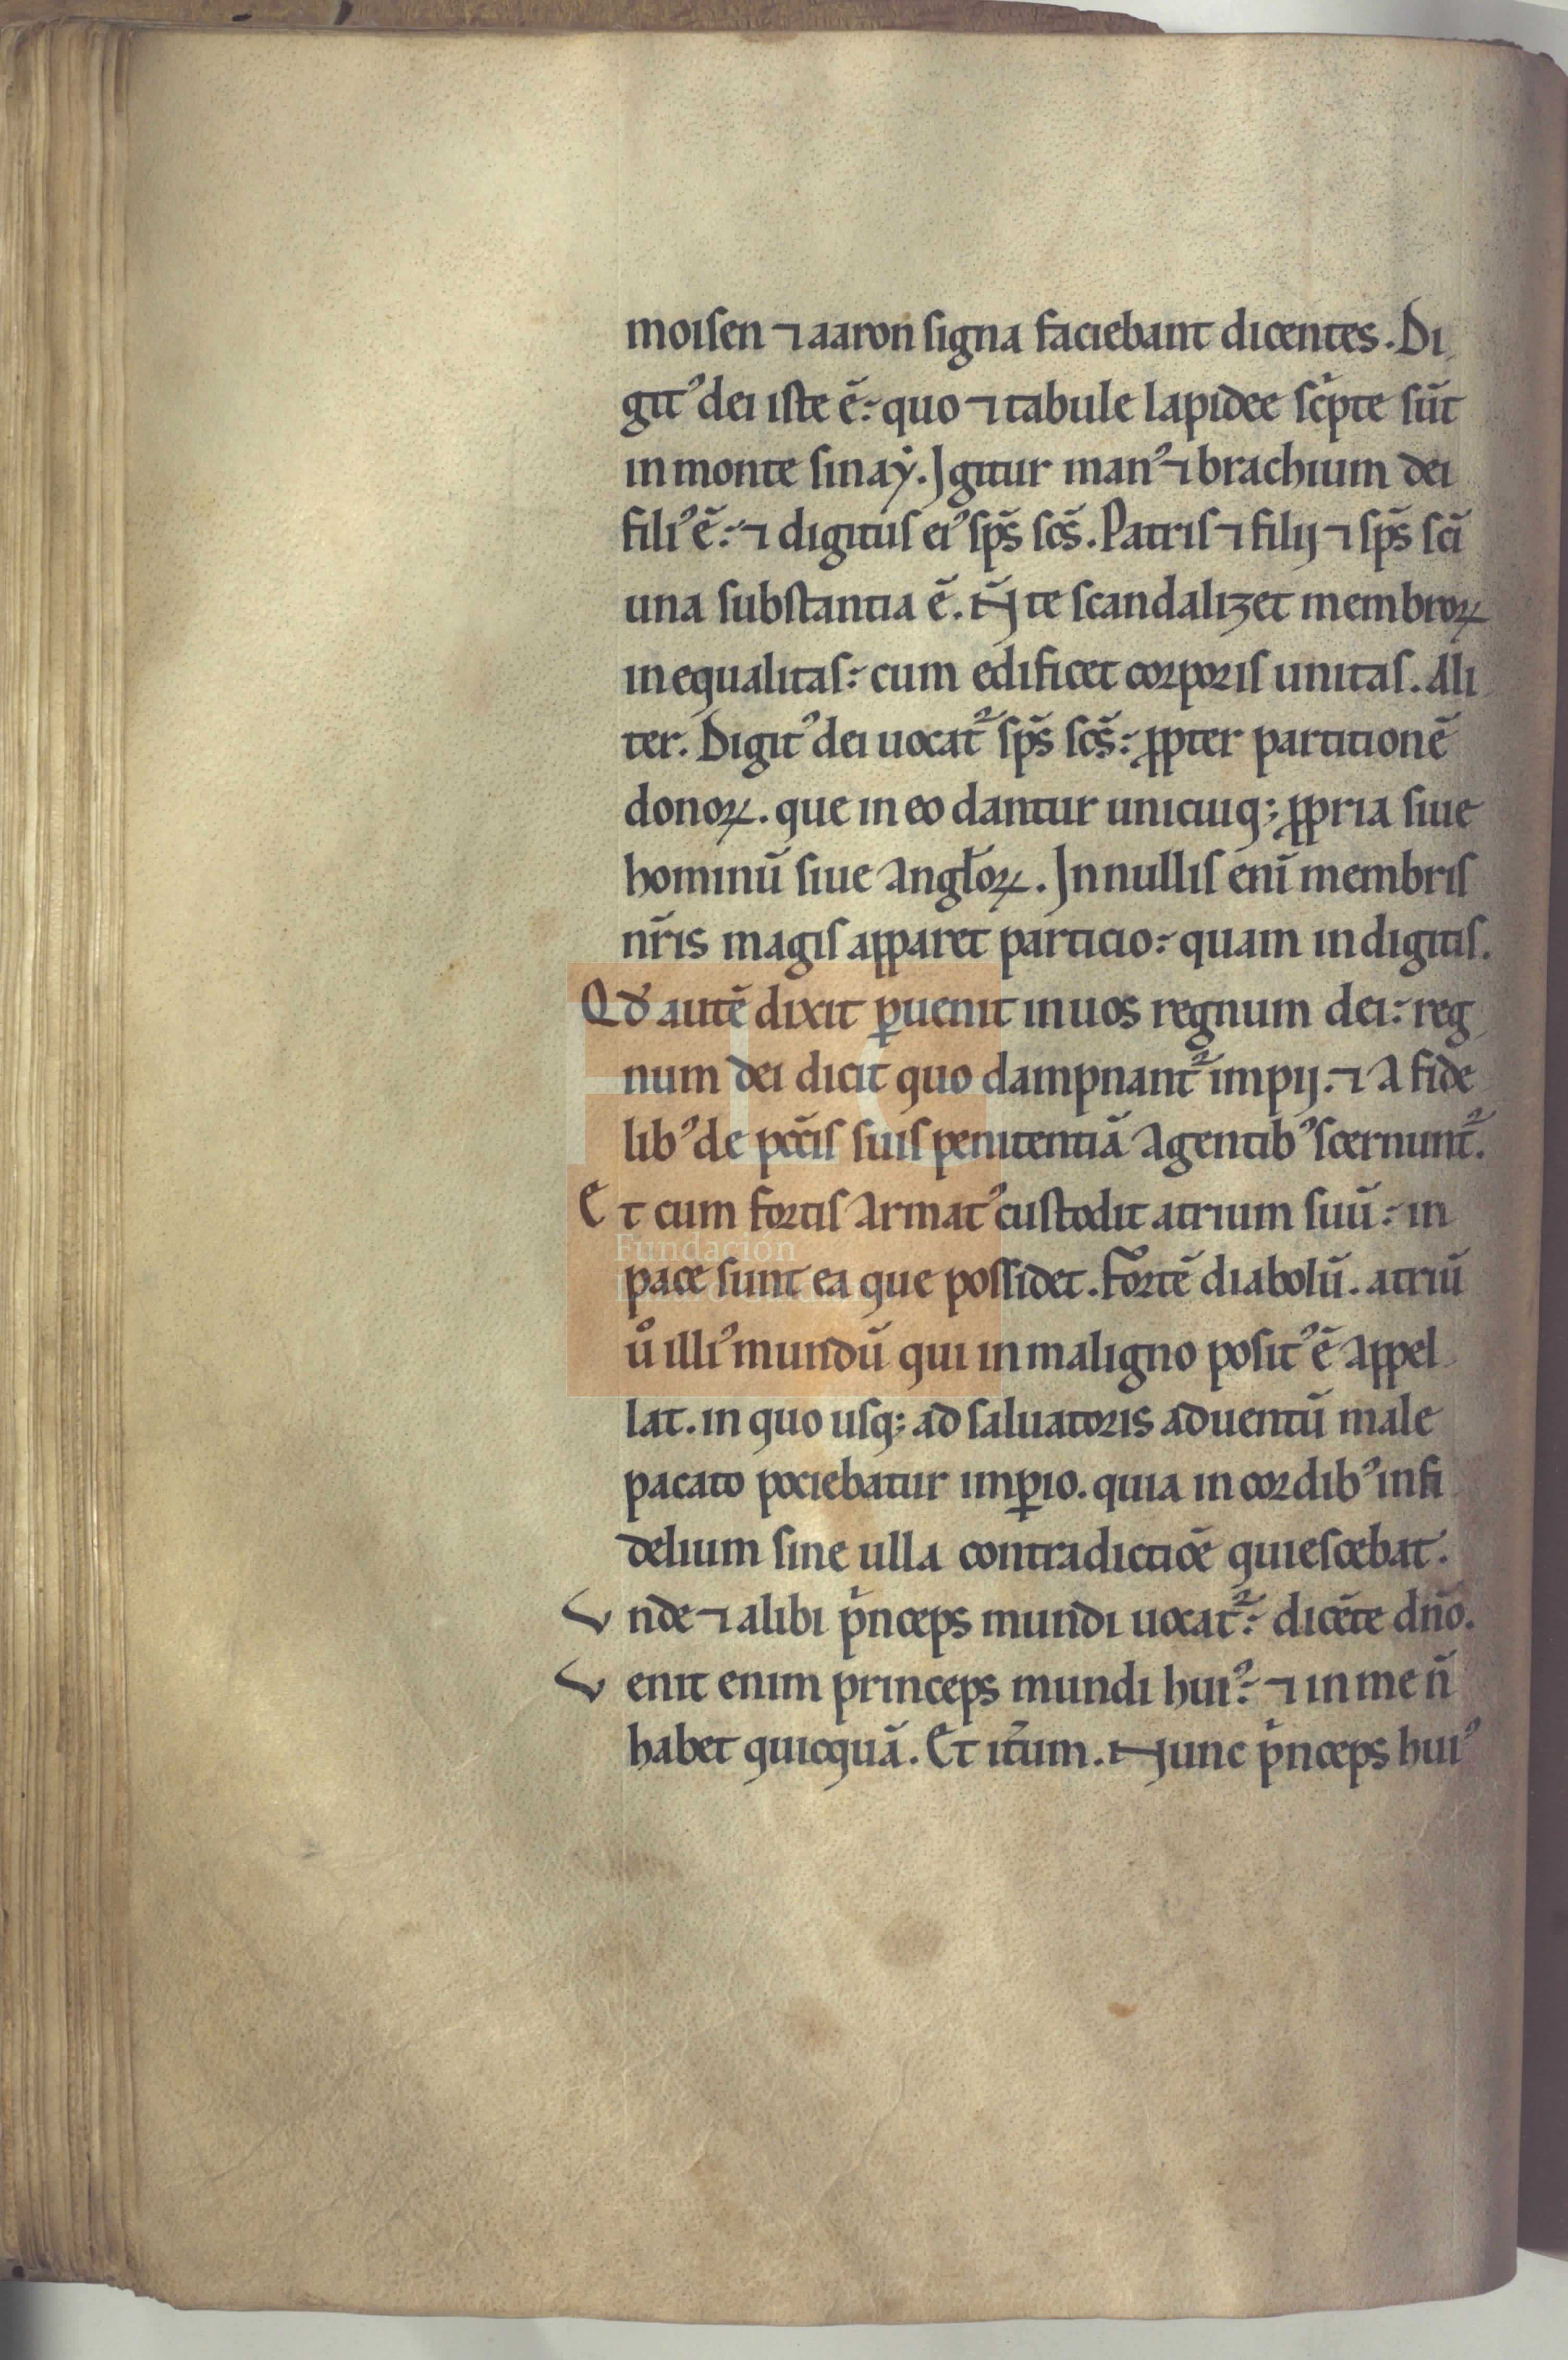 moiſen ⁊ aaron ſigna faciebant dicentes. Di
gitꝰ dei iſte ē: quo ⁊ tabule lapidee ſcͥpte ſūt
in monte ſinaẏ. Igitur manꝰ ⁊ brachium dei
filiꝰ ē: ⁊ digituſ eiꝰ ſp̄s ſc̄s. Patriſ ⁊ filij ⁊ ſp̄s ſc̄i
una ſubſtantia ē. N̄ te ſcandalizet membroꝝ
inequalitaſ: cum edificet corporiſ unitaſ. Ali
ter. Digitꝰ dei uocat᷑ ſp̄s ſc̄s: ꝓpter partitionē
donoꝝ. que in eo dantur unicuiqꝫ ꝓpria ſiue
hominū ſiue angl̄oꝝ. In nulliſ enī membriſ
nr̄is magiſ apparet particio: quam in digitiſ.
Qđ autē dixit ꝑuenit in uos regnum dei: reg
num dei dicit quo dampnant᷑ impij. ⁊ a fide
libꝰ de pcc̄iſ ſuiſ penitentiā agentibꝰ ſcernunt᷑.
Et cum fortiſ armatꝰ cuſtodit atrium ſuū: in
pace ſunt ea que poſſidet. Fortē diabolū. atriū
uͦ illiꝰ mundū qui in maligno poſitꝰ ē appel
lat. in quo uſqꝫ ad ſaluatoris aduentū male
pacato pociebatur imꝑio. quia in cordibꝰ infi
delium ſine ulla contradictiōe quieſcebat.
Unde ⁊ alibi pͥnceps mundi uocat᷑: dicēte dn̄o.
Uenit enim princeps mundi huiꝰ: ⁊ in me n̄
habet quicquā. Et it̄um. Nunc pͥnceps huiꝰ
Fundación